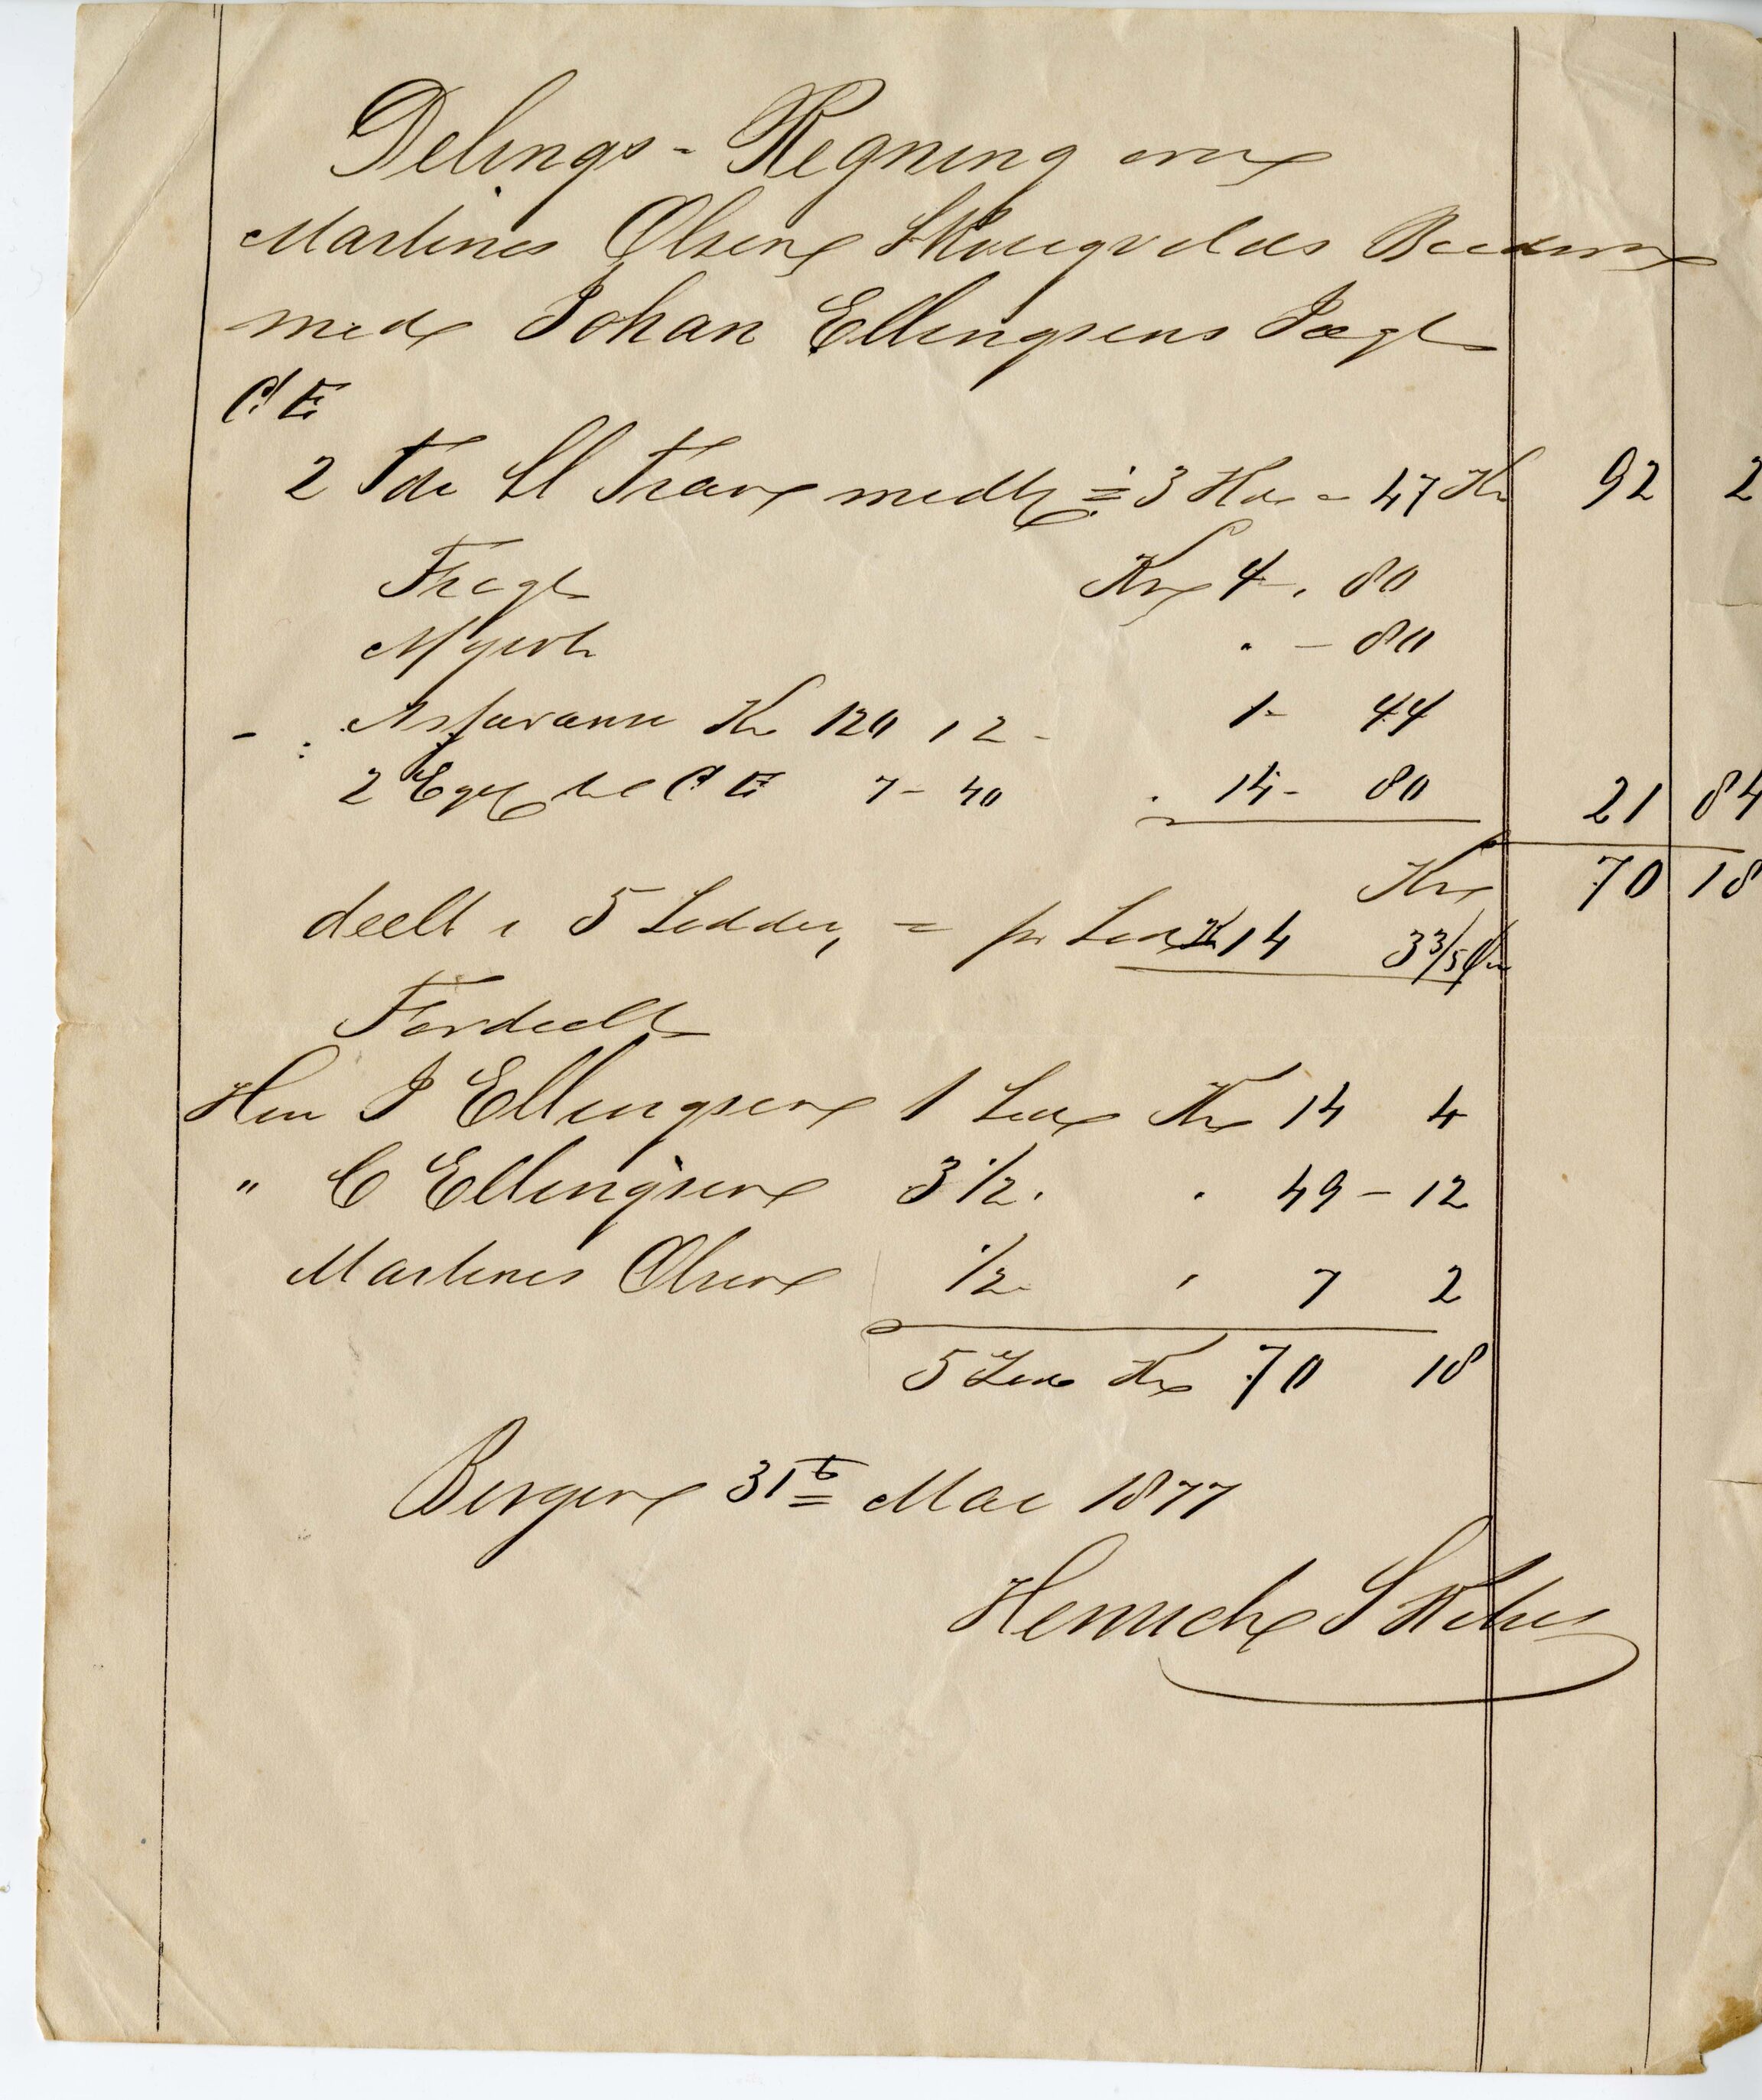 Delings-Regning over
Martines Olsen Skougvolds
med Johan Ellingsens Jægt
C E
2 Tdr Tran 3 Kdr - 47 Kr 92 2
Fragt Kr 4 . 80
" - 80
- Assurance Kr 120 1 2 - 1 - 44
2 Egef til C E 7 - 40 " 14 - 80 21 84
Kr 70 18
deelt i 5 Lodder, = pr Lod Kr 14 3 3/5 Øre
Fordeelt
Herr J Ellingsen 1 Lod Kr 14 4
" C Ellingsen 3 1/2 " " 49 - 12
Martines Olsen 1/2 " 7 2
5 Lod Kr 70 18
Bergen 31te Mai 1877
Henrich